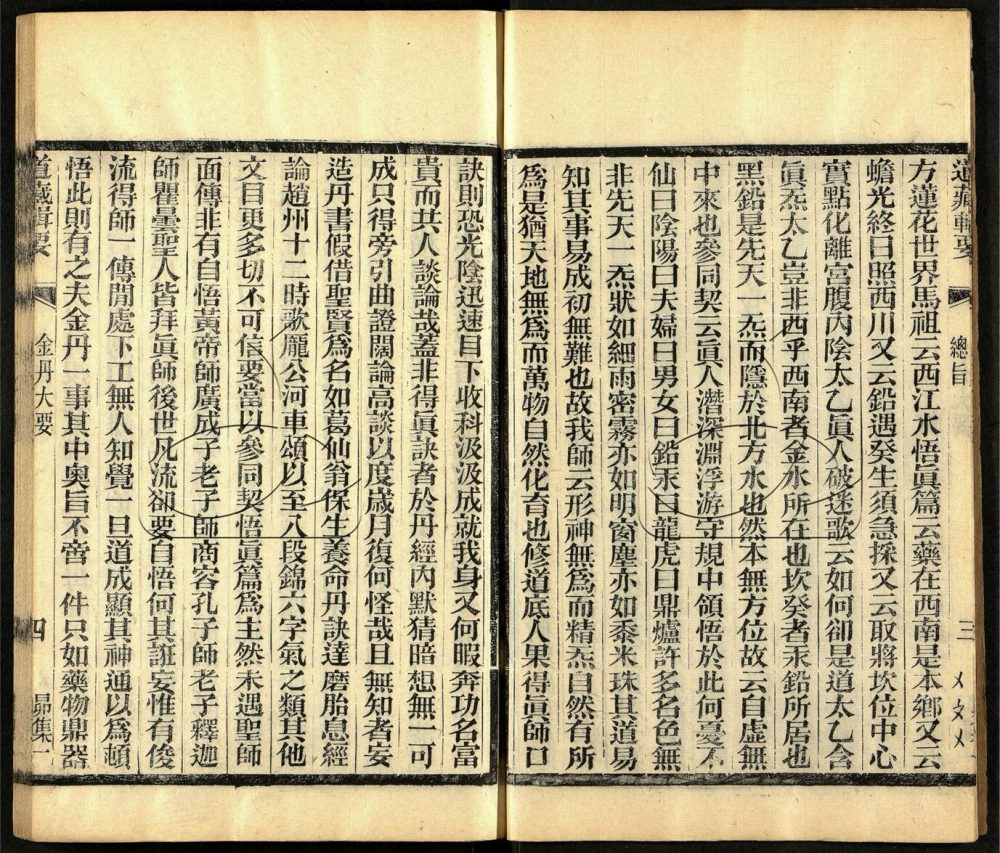 道藏輯要
總旨
三
方蓮花世界馬祖云西江水悟眞篇云藥在西南是本鄉又云
蟾光終日照西川又云鉛遇癸生須急採又云取將坎位中心
實點化離宮腹內陰太乙眞人破迷歌云如何卻是道太乙含
眞炁太乙豈非西乎西南者金水所在也坎癸者汞鉛所居也
黑鉛是先天一炁而隱於北方水也然本無方位故云自虛無
中來也參同契云眞人潛深淵浮游守規中領悟於此何憂不
仙曰陰陽曰夫婦曰男女曰鉛汞曰龍虎曰鼎爐許多名色無
非先天一炁狀如細雨密霧亦如明窗塵亦如黍米珠其道易
知其事易成初無難也故我師云形神無爲而精炁自然有所
爲是猶天地無爲而萬物自然化育也修道底人果得眞師口
訣則恐光陰迅速目下收科汲汲成就我身又何暇奔功名富
貴而共人談論哉蓋非得眞訣者於丹經內默猜暗想無一可
成只得旁引曲證闊論高談以度歲月復何怪哉且無知者妄
造丹書假借聖賢爲名如葛仙翁保生養命丹訣達磨胎息經
論趙州十二時歌龐公河車頌以至八段錦六字氣之類其他
文目更多切不可信要當以參同契悟眞篇爲主然未遇聖師
面傳非有自悟黃帝師廣成子老子師商容孔子師老子釋迦
師瞿曇聖人皆拜眞師後世凡流卻要自悟何其誑妄惟有俊
流得師一傳閒處下工無人知覺一旦道成顯其神通以爲頓
悟此則有之夫金丹一事其中奧旨不啻一件只如藥物鼎器
道藏輯要
金丹大要
四
昴集一